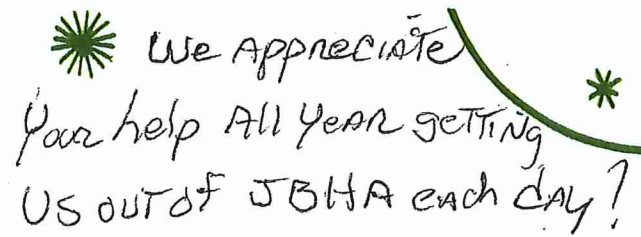 We Appreciate
Your help All Year getting
US OUT of JBHA each day!